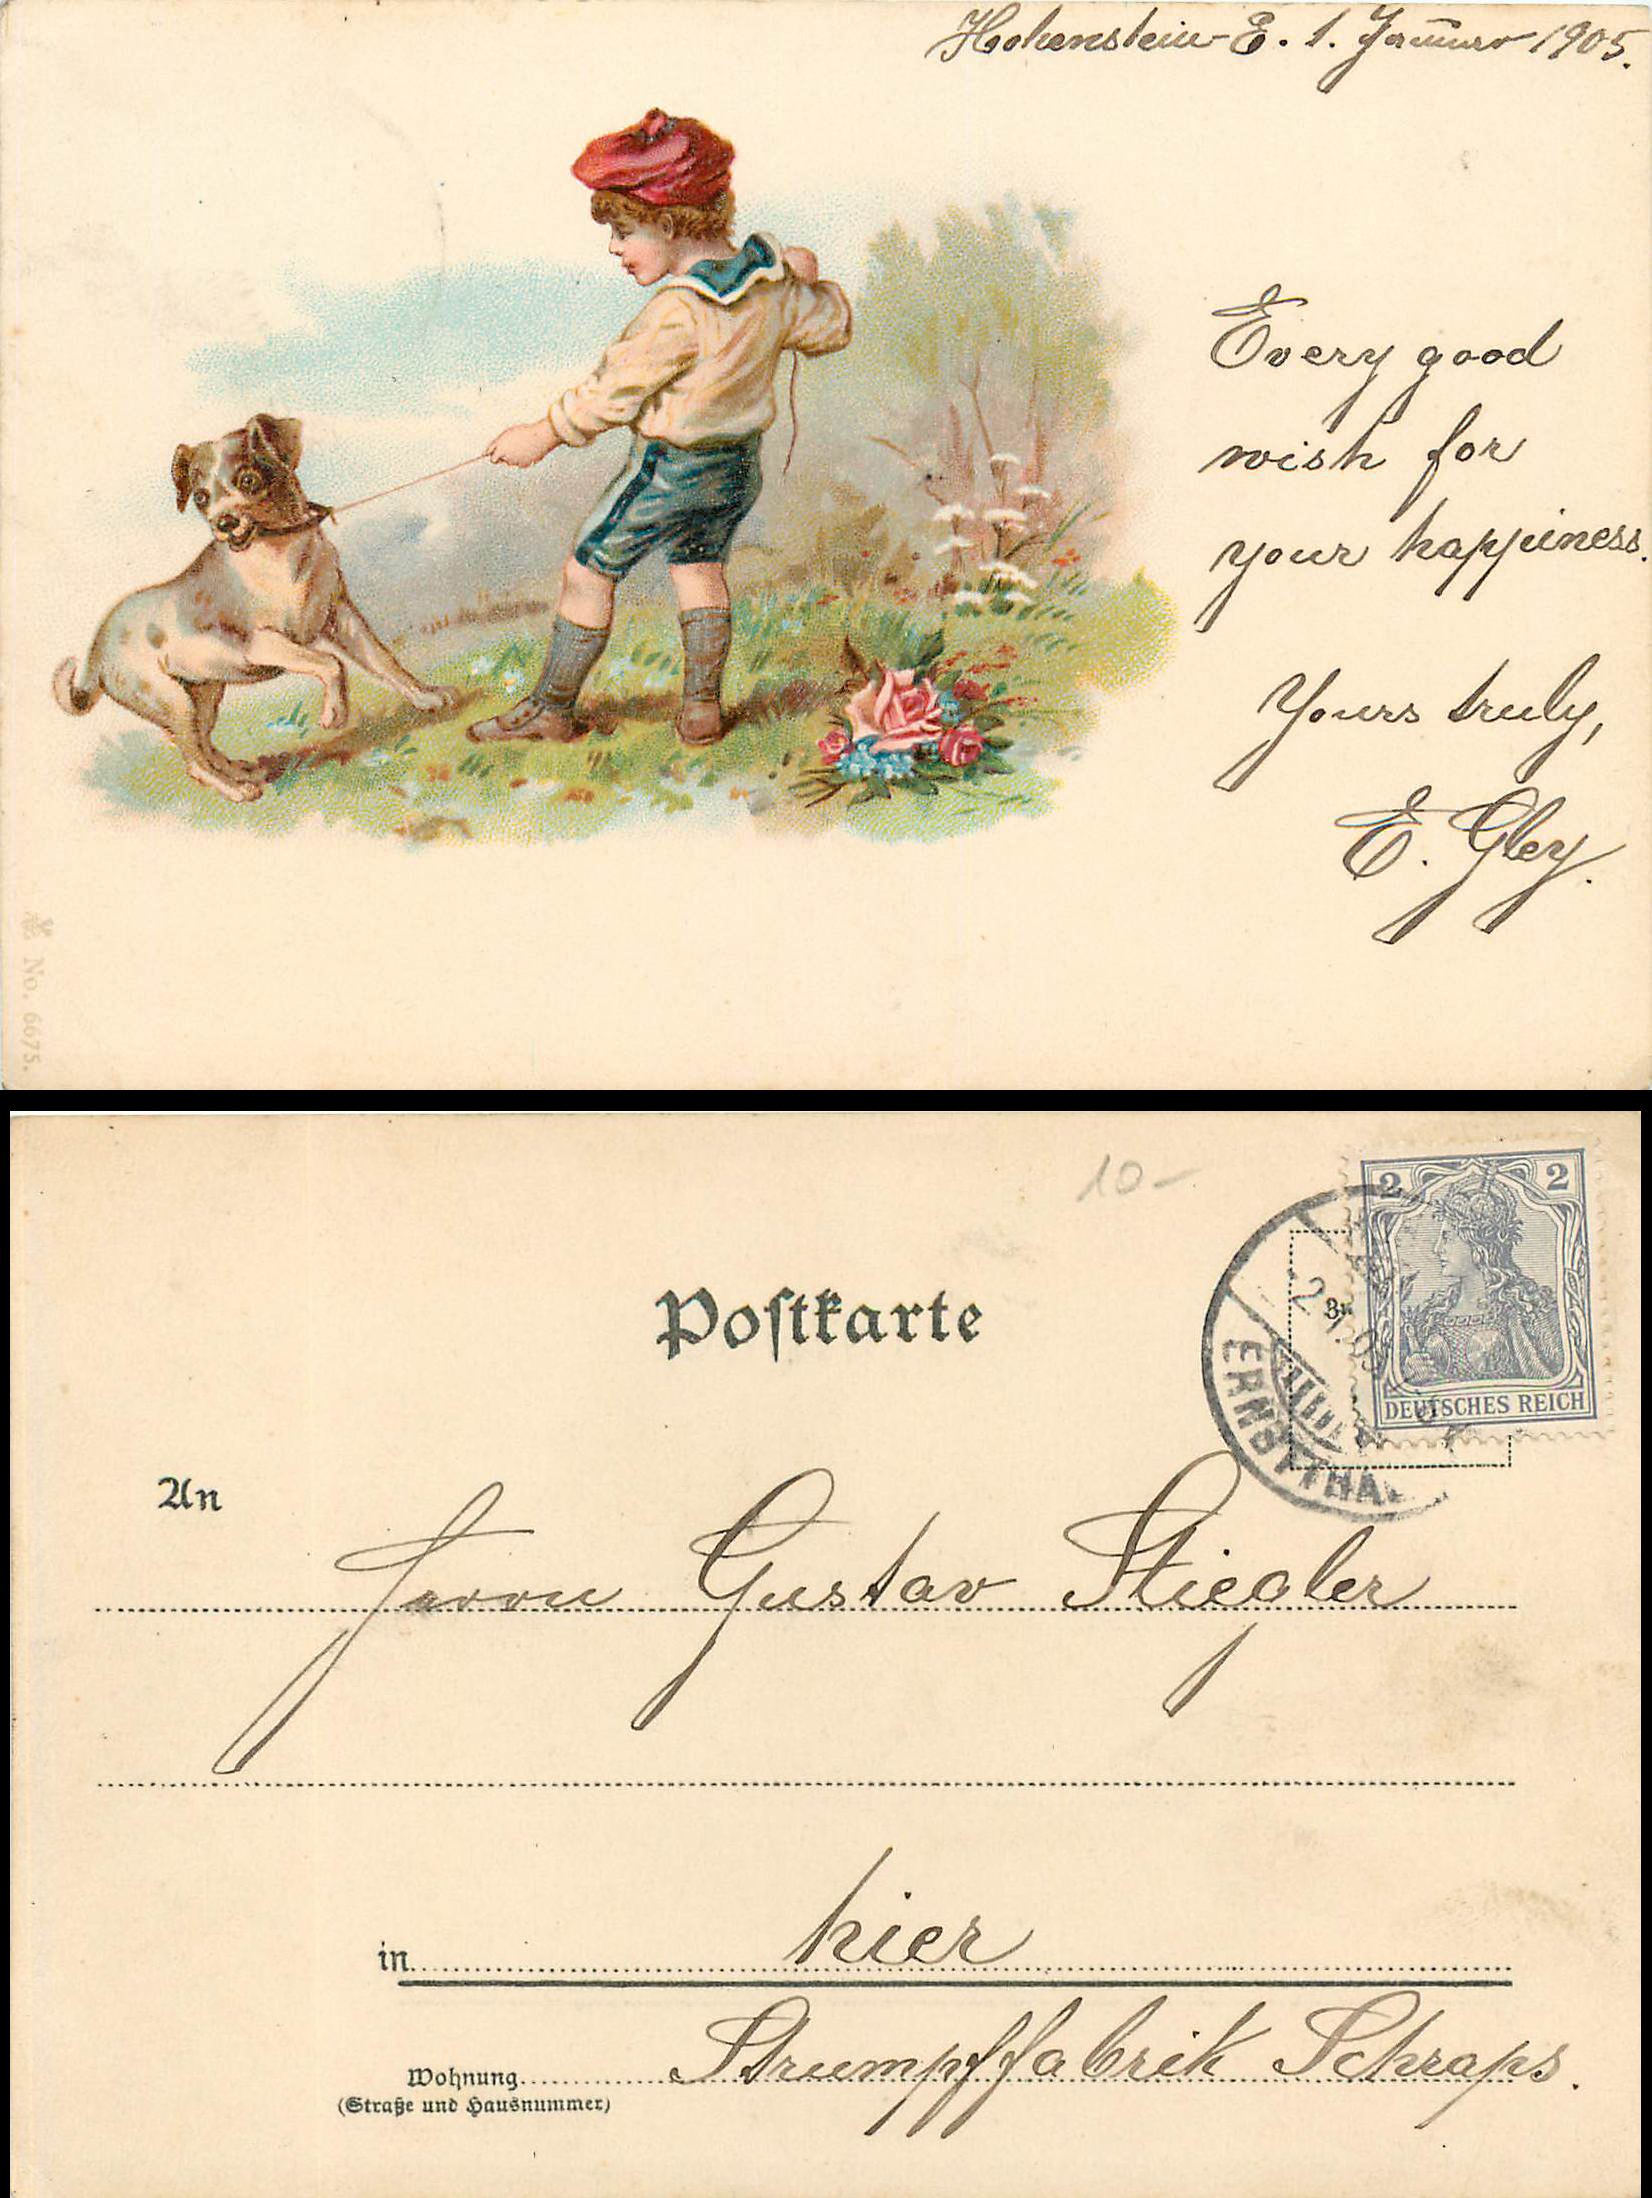 Hohenstein-E. 1. Januar 1905.
Every good
wish for
your happiness.
Yours truly,
E. Gley.
No. 6675.
10-
Postkarte
2 2
DEUTSCHES REICH
ERNSTTHAL
An
Herrn Gustav Stiegler
in hier
Wohnung Strumpffabrik Schraps.
(Straße und Hausnummer)